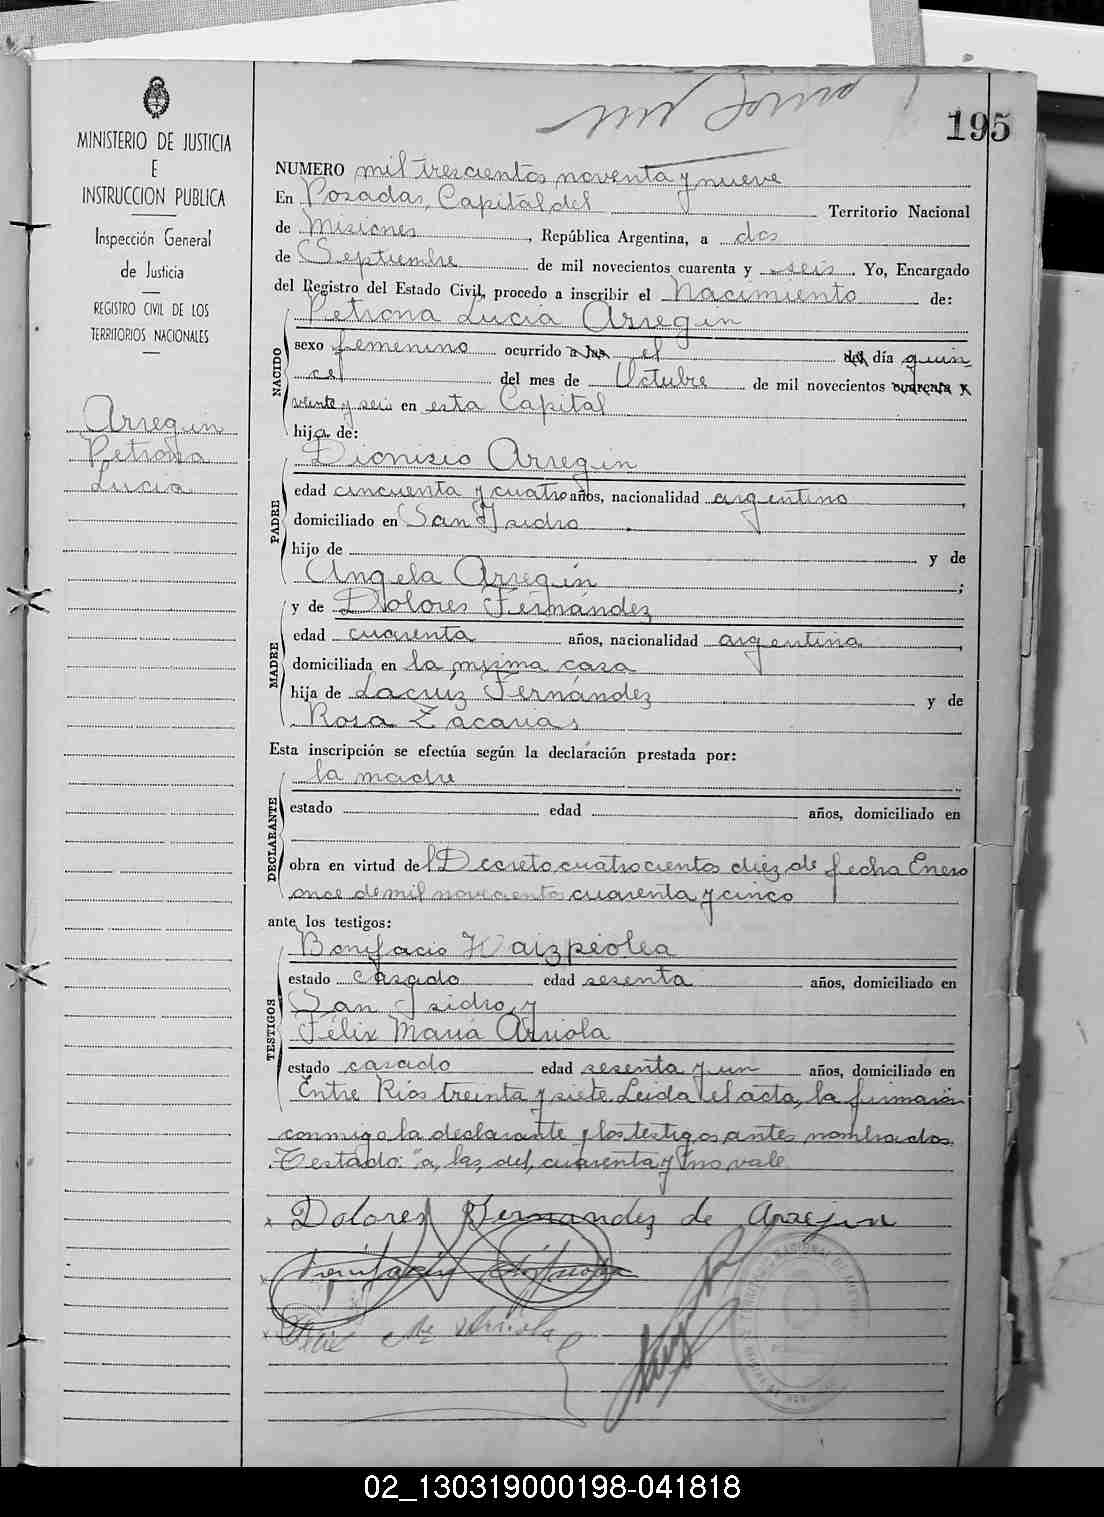 195
MINISTERIO DE JUSTICIA
E
INSTRUCCION PUBLICA
Inspección General
de Justicia
REGISTRO CIVIL DE LOS
TERRITORIOS NACIONALES
Arregin
Petrona
Lucia
NUMERO mil trescientos noventa y nueve
En Posadas, Capital del Territorio Nacional
de Misiones, República Argentina, a dos
de Septiembre de mil novecientos cuarenta y seis. Yo, Encargado
del Registro del Estado Civil, procedo a inscribir el Nacimiento de:
Petrona Lucia Arregin
NACIDO
sexo femenino ocurrido a las el del día quin
ce del mes de Octubre de mil novecientos cuarenta y
veinte y seis en esta Capital
hija de:
Dionisio Arregin
PADRE
edad cincuenta y cuatro años, nacionalidad argentino
domiciliado en San Isidro
hijo de y de
Angela Arregin;
y de Dolores Fernández
MADRE
edad cuarenta años, nacionalidad argentina
domiciliada en la misma casa
hija de Lacruz Fernández y de
Rosa Zacarias
Esta inscripción se efectúa según la declaración prestada por:
la madre
DECLARANTE
estado edad años, domiciliado en
obra en virtud del Decreto cuatrocientos diez de fecha Enero
once de mil novecientos cuarenta y cinco
ante los testigos:
Bonifacio Haizpeolea
TESTIGOS
estado casado edad sesenta años, domiciliado en
San Isidro y
Félix Maria Arriola
estado casado edad sesenta y un años, domiciliado en
Entre Rios treinta y siete. Leida el acta, la firmaron
conmigo la declarante y los testigos antes nombrados.
Testado: "a, las, del, cuarenta y" no vale
Dolores Fernandez de Arregin
02_130319000198-041818